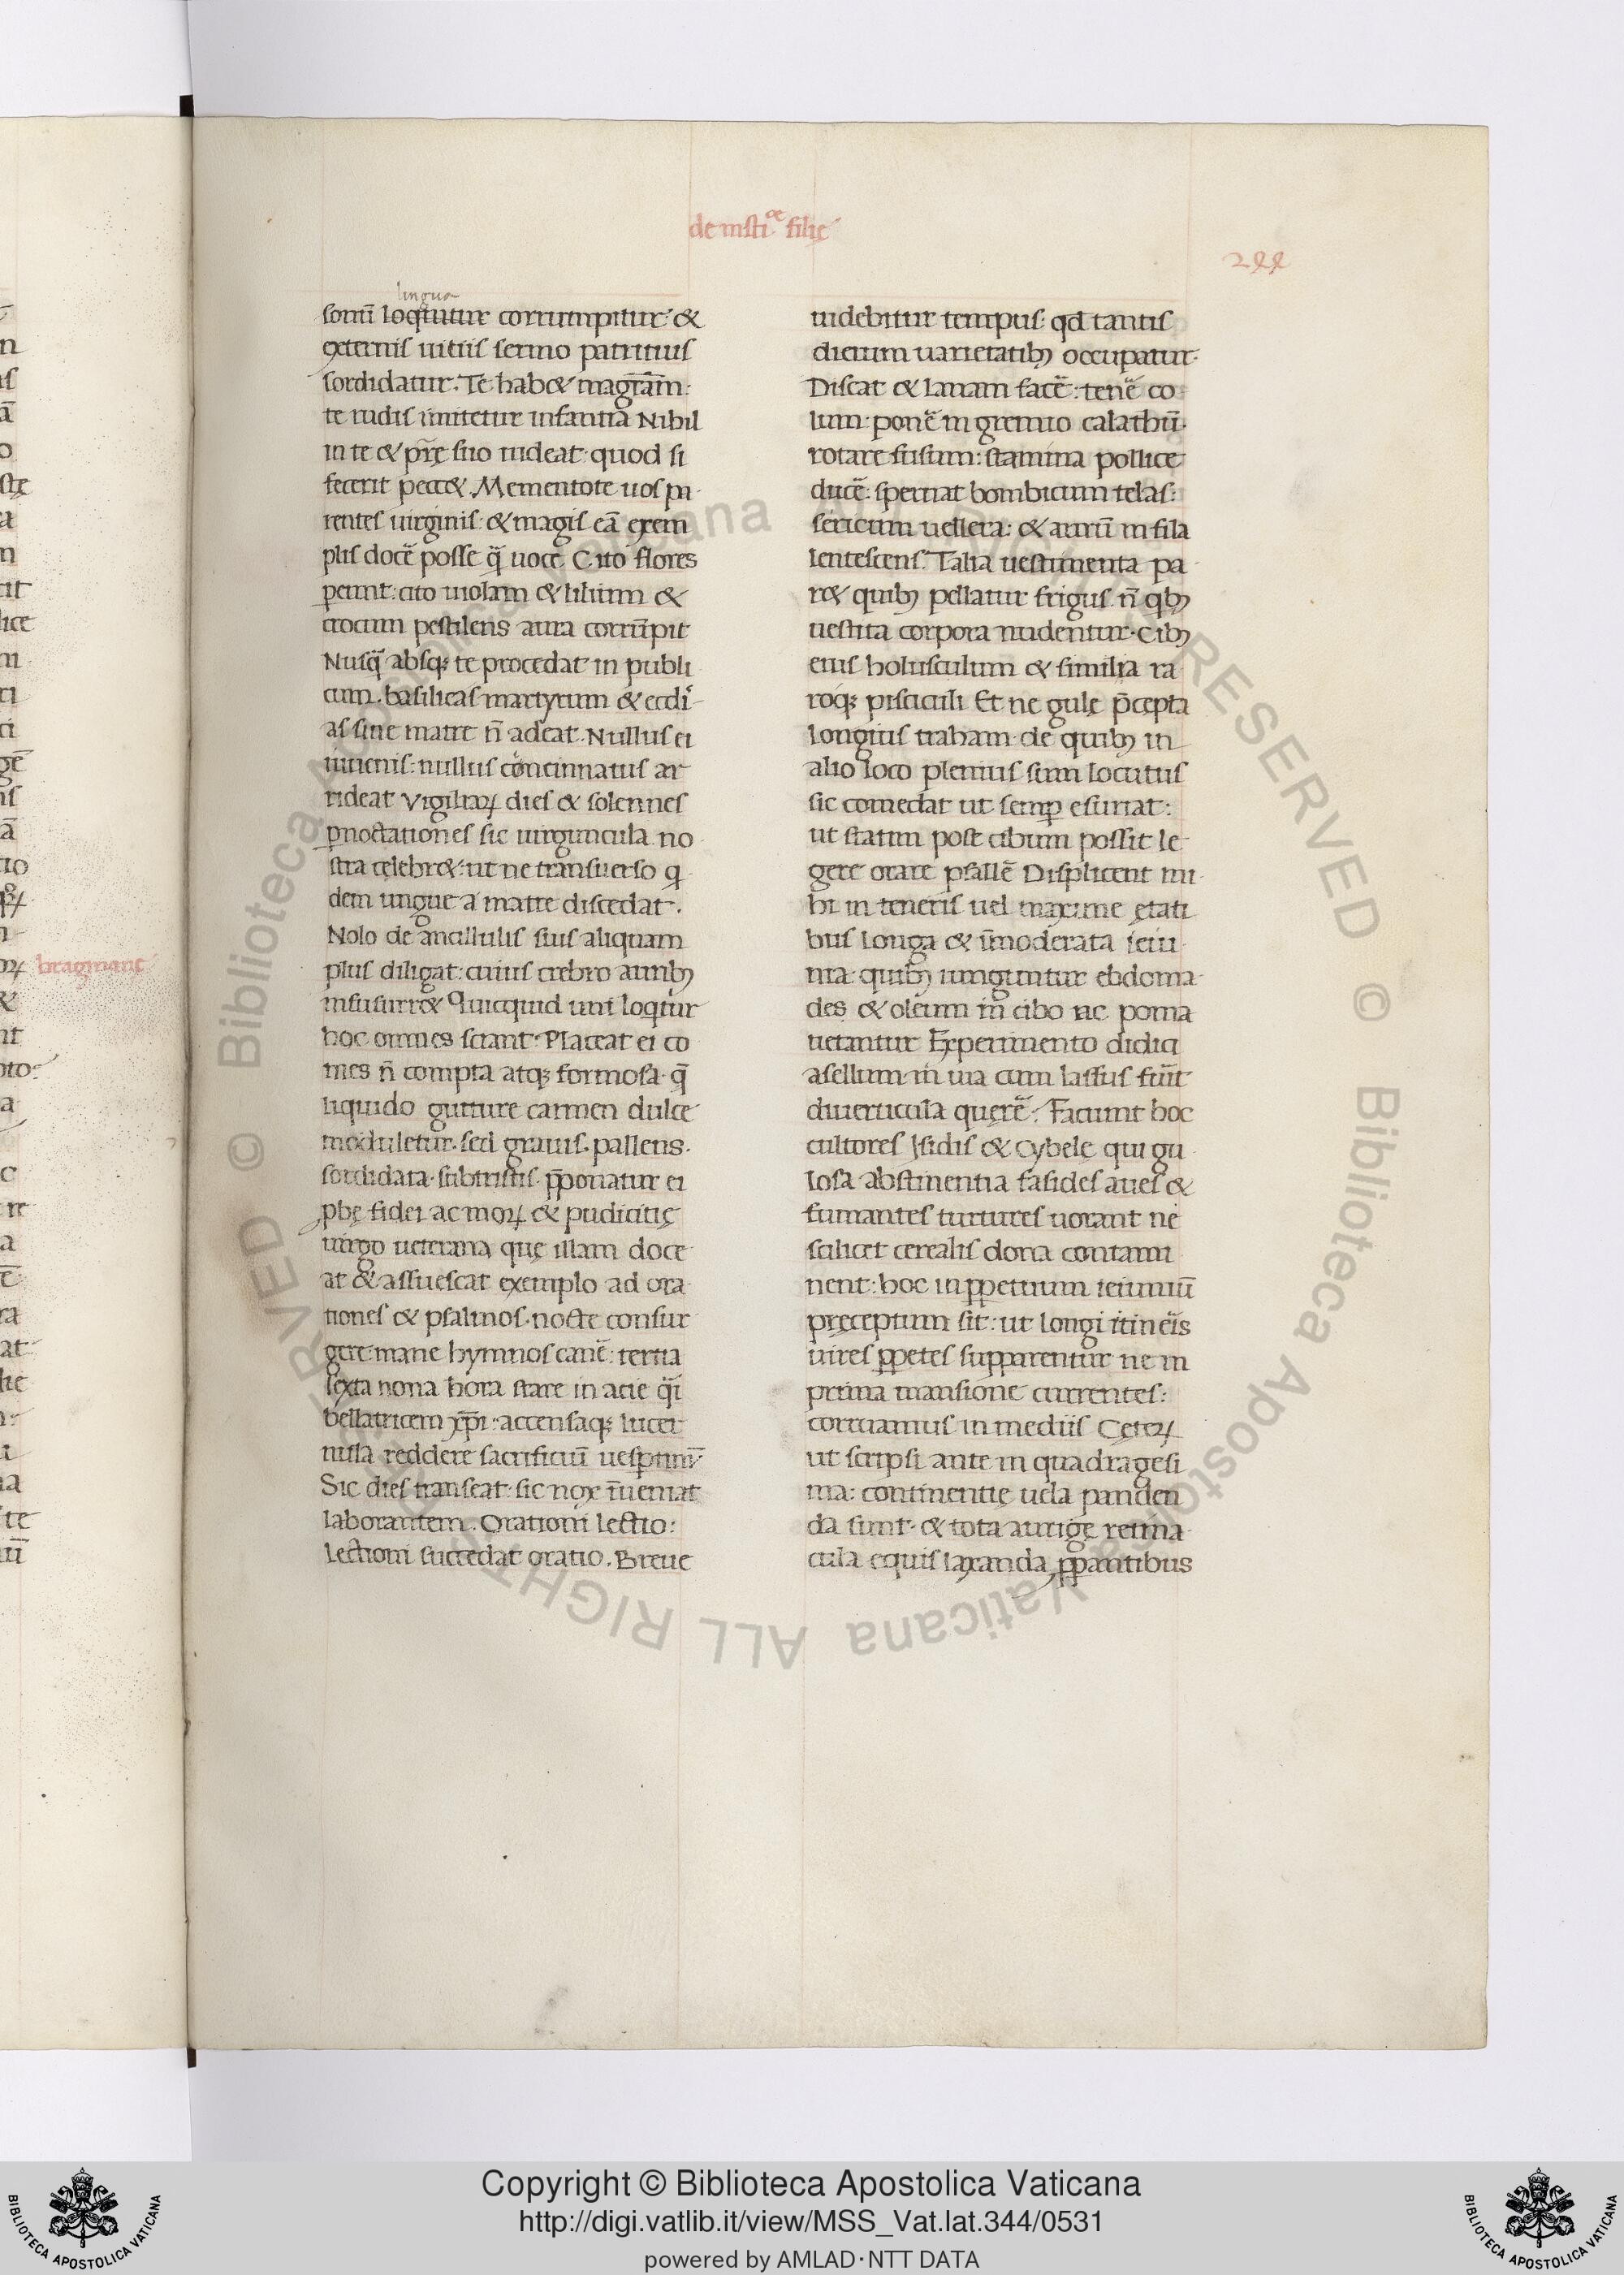 de insti^oe filię
244
lingua
sonū loqtutur corrumpitur & 
externis uitiis sermo patritius
sordidatur. Te hab& magr̄am:
te rudis imitetur infantia Nihil
in te & pr̄ę suo uideat quod si
fecerit pecc&. Mementote uos pa
rentes uirginis: & magis eā exem
plis docē posse q̄ uoce Cito flores
pereunt: cito uiolam & lilium &
crocum pestilens aura corrūpit
Nusq̄ absq; te procedat in publi
cum. basilicas martyrum & eccli
as sine matre n̄ adeat. Nullus ei
iuuenis: nullus concinnatus ar
rideat Vigiliaꝝ dies & solennes
ꝑnoctationes sic uirguncula no
stra celebr&: ut ne transuerso q
dem ungue a matre discedat.
Nolo de ancillulis suis aliquam
plus diligat: cuius crebro auribꝫ
insusurr& Quicquid uni loqtur
hoc omnes sciant. Placeat ei co
mes n̄ compta atq; formosa q̄
liquido gutture carmen dulce
moduletur. sed grauis. pallens.
sordidata. subtristis. p̄ponatur ei
ꝓbę fidei ac moꝝ & pudicitię
uirgo ueterana quę illam doce
at & assuescat exemplo ad ora
tiones & psalmos. nocte consur
gere: mane hymnos canē: tertia
sexta nona hora stare in acie q̄i
bellatricem xp̄i. accensaq; lucer
nula reddere sacrificiū uesꝑtinū
Sic dies transeat. sic nox īueniat
laborantem. Orationi lectio:
lectioni succedat oratio. Breue
uidebitur tempus: qd tantis
dierum uarietatibꝫ occupatur.
Discat & lanam facē: tenē co
lum: ponē in gremio calathū.
rotare fusum: stamina pollice
ducē: spernat bombicum telas:
sericum uellera: & aurū in fila
lentescens. Talia uestimenta pa
r& quibꝫ pellatur frigus. n̄ qbꝫ
uestita corpora nudentur. Cibꝫ
eius holusculum & similia ra
roq; pisciculi Et ne gulę p̄cepta
longius traham: de quibꝫ in
alio loco plenius sum locutus
sic comedat ut semꝑ esuriat:
ut statim post cibum possit le
gere orare psallē Displicent mi
hi in teneris uel maxime ętati
bus longa & īmoderata ieiu
nia: quibꝫ iunguntur ebdoma
des & oleum in cibo ac poma
uetantur Experimento didici
asellum in uia cum lassus fuīt
diuerticula querē. Faciunt hoc
cultores Isidis & Cybelę qui gu
losa abstinentia fasides aues &
fumantes turtures uorant ne
scilicet cerealis dona contami
nent: hoc in ꝑpetuum ieiuniū
pręceptum sit: ut longi itinēis
uires ꝑpetes supparentur ne in
prima mansione currentes:
corruamus in mediis Ceteꝝ
ut scripsi ante in quadragesi
ma: continentię uela panden
da sunt. & tota aurigę retina
cula equis laxanda ꝓꝑantibus
bragmanę
Copyright © Biblioteca Apostolica Vaticana
http://digi.vatlib.it/view/MSS_Vat.lat.344/0531
powered by AMLAD·NTT DATA
BIBLIOTECA APOSTOLICA VATICANA
BIBLIOTECA APOSTOLICA VATICANA
© Biblioteca Apostolica Vaticana ALL RIGHTS RESERVED © Biblioteca Apostolica Vaticana ALL RIGHTS RESERVED